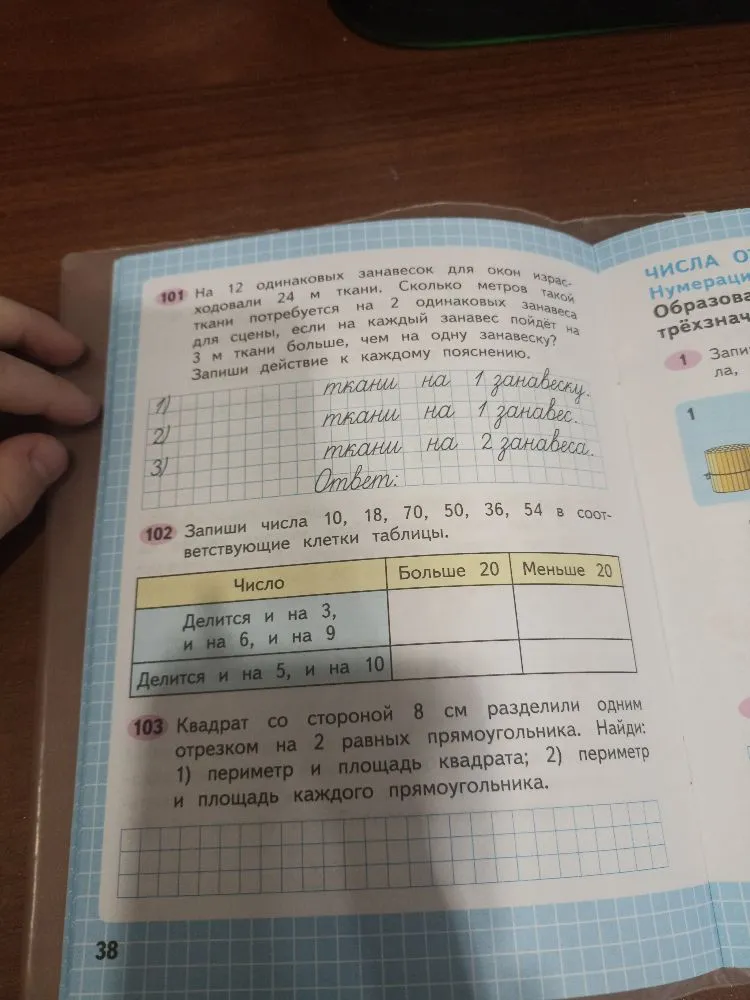 101 На 12 одинаковых занавесок для окон израс-
ходовали 24 м ткани. Сколько метров такой
ткани потребуется на 2 одинаковых занавеса
для сцены, если на каждый занавес пойдёт на
3 м ткани больше, чем на одну занавеску?
Запиши действие к каждому пояснению.
1) ткани на 1 занавеску.
2) ткани на 1 занавес.
3) ткани на 2 занавеса.
Ответ:
102 Запиши числа 10, 18, 70, 50, 36, 54 в соот-
ветствующие клетки таблицы.
Число Больше 20 Меньше 20
Делится и на 3,
и на 6, и на 9
Делится и на 5, и на 10
103 Квадрат со стороной 8 см разделили одним
отрезком на 2 равных прямоугольника. Найди:
1) периметр и площадь квадрата; 2) периметр
и площадь каждого прямоугольника.
38
ЧИСЛА О
Нумераци
Образова
трёхзнач
1 Запи
ла,
1